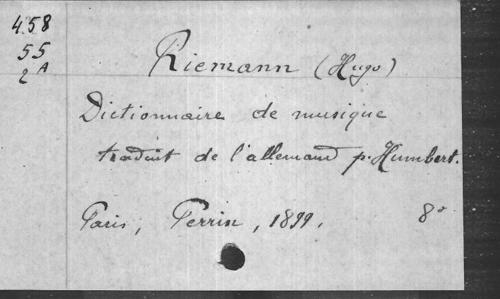 458
55
2 A
Riemann (Hugo)
Dictionnaire de musique
traduit de l'allemand p. Humbert.
Paris, Perrin, 1899. 8°